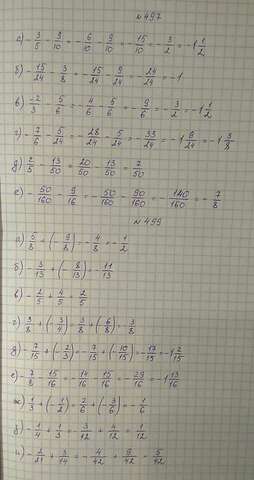 №497
а) -3/5 - 9/10 = -6/10 - 9/10 = -15/10 = -3/2 = -1 1/2
б) -15/24 - 3/8 = -15/24 - 9/24 = -24/24 = -1
в) -2/3 - 5/6 = -4/6 - 5/6 = -9/6 = -3/2 = -1 1/2
г) -7/6 - 5/24 = -28/24 - 5/24 = -33/24 = -1 9/24 = -1 3/8
д) 2/5 - 13/50 = 20/50 - 13/50 = 7/50
е) -50/160 - 9/16 = -50/160 - 90/160 = -140/160 = -7/8
№499
а) 5/8 + (-9/8) = -4/8 = -1/2
б) -3/13 + (-8/13) = -11/13
в) -2/5 + 4/5 = 2/5
г) 3/8 + (-3/4) = 3/8 + (-6/8) = -3/8
д) -7/15 + (-2/3) = -7/15 + (-10/15) = -17/15 = -1 2/15
е) -7/8 - 15/16 = -14/16 - 15/16 = -29/16 = -1 13/16
ж) 1/3 + (-1/2) = 2/6 + (-3/6) = -1/6
з) -1/4 + 1/3 = -3/12 + 4/12 = 1/12